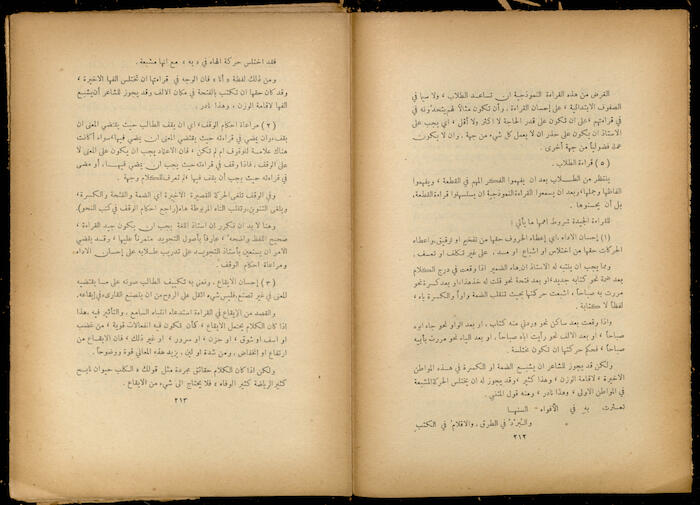 الغرض من هذه القراءة النموذجية ان تساعد الطلاب ، ولا سيما في
الصفوف الابتدائية ، على إحسان القراءة ، وأن تكون مثالاً لهم يتحدونه في
قراءتهم ، على أن تكون على قدر الحاجة لا اكثر ولا أقل ، اي يجب على
الاستاذ ان يكون على حذر ان لا يعمل كل شيء من جهة ، وان لا يكون
عمله فضولياً من جهة أخرى .
( ٥ ) قراءة الطلاب .
ينتظر من الطلاب بعد ان يفهموا الفكر المهم في القطعة ، ويفهموا
الفاظها وجملها ، وبعد ان يسمعوا القراءة النموذجية ان يستسهلوا قراءة القطعة ،
بل أن يحسنوها .
للقراءة الجيدة شروط اهمها ما يأتي :
( ١ ) إحسان الاداء ، اي إعطاء الحروف حقها من تفخيم او ترقيق ، واعطاء
الحركات حقها من اختلاس او اشباع او مد ، على غير تكلف او تعسف .
ومما يجب ان ينتبه له الاستاذ ان هاء الضمير اذا وقعت في درج الكلام
بعد ضمة نحو كتابه جديد ، او بعد فتحة نحو قلت له خذ هذا ، او بعد كسرة نحو
مررت به صباحاً ، اشبعت حركتها بحيث تنقلب الضمة واواً والكسرة ياء ،
لفظاً لا كتابة .
واذا وقعت بعد ساكن نحو وردني منه كتاب ، او بعد الواو نحو جاء ابوه
صباحاً ، او بعد الالف نحو رأيت اباه صباحاً ، او بعد الياء نحو مررت بأبيه
صباحاً ، فحكم حركتها ان تكون مختلسة .
ولكن قد يجوز للشاعر ان يشبع الضمة او الكسرة في هذه المواطن
الاخيرة ، لاقامة الوزن ، وهذا كثير ، وقد يجوز له ان يختلس الحركة المشبعة
في المواطن الاولى ، وهذا نادر ، ومنه قول المتنبي .
تعثرت به في الأفواه السنها
والبرد في الطرق ، والاقلام في الكتب
٢١٢
فقد اختلس حركة الهاء في « به » مع انها مشبعة .
ومن ذلك لفظة « أنا » فان الوجه في قراءتها ان تختلس الفها الاخيرة ،
وقد كان حقها ان تكتب بالفتحة في مكان الالف وقد يجوز للشاعر أن يشبع
الفها لاقامة الوزن ، وهذا نادر .
( ٢ ) مراعاة احكام الوقف ، اي ان يقف الطالب حيث يقتضي المعنى ان
يقف ، وان يمضي في قراءته حيث يقتضي المعنى ان يمضي فيها ، سواء أكانت
هناك علامة للوقوف ام لم تكن ، فان الاعتماد يجب ان يكون على المعنى لا
على الوقف ، فاذا وقف في قراءته حيث يجب ان يمضي فيها ، او مضى
في قراءته حيث يجب أن يقف فيها ، لم تعرف للكلام وجهة .
وفي الوقف تلغى الحركة القصيرة الاخيرة اي الضمة والفتحة والكسرة ،
ويلغى التنوين ، وتقلب التاء المربوطة هاء ( راجع احكام الوقف في كتب النحو ) .
وهنا لا بد ان نكرر ان استاذ اللغة يجب ان يكون جيد القراءة ،
صحيح اللفظ واضحه ، عارفاً بأصول التجويد متمرناً عليها ، وقد يقضي
الامر ان يستعين بأستاذ التجويد على تدريب طلابه على إحسان الاداء ،
ومراعاة احكام الوقف .
( ٣ ) إحسان الايقاع ، ونعني به تكييف الطالب صوته على ما يقتضيه
المعنى في غير تصنع ، فليس شيء اثقل على الروح من ان يتصنع القارىء في إيقاعه .
والقصد من الايقاع في القراءة استدعاء انتباه السامع ، والتأثير فيه ، هذا
اذا كان الكلام يحتمل الايقاع ، كأن تكون فيه انفعالات قوية ، من غضب
او اسف او شوق ، او حزن ، او سرور ، او غير ذلك ، فان الايقاع من
ارتفاع او انخفاض ، ومن شدة او لين ، يزيد هذه المعاني قوة ووضوحاً .
ولكن اذا كان الكلام حقائق مجردة مثل قولك « الكلب حيوان نابح
كثير الرياضة كثير الوفاء ، فلا يحتاج الى شيء من الايقاع .
٢١٣